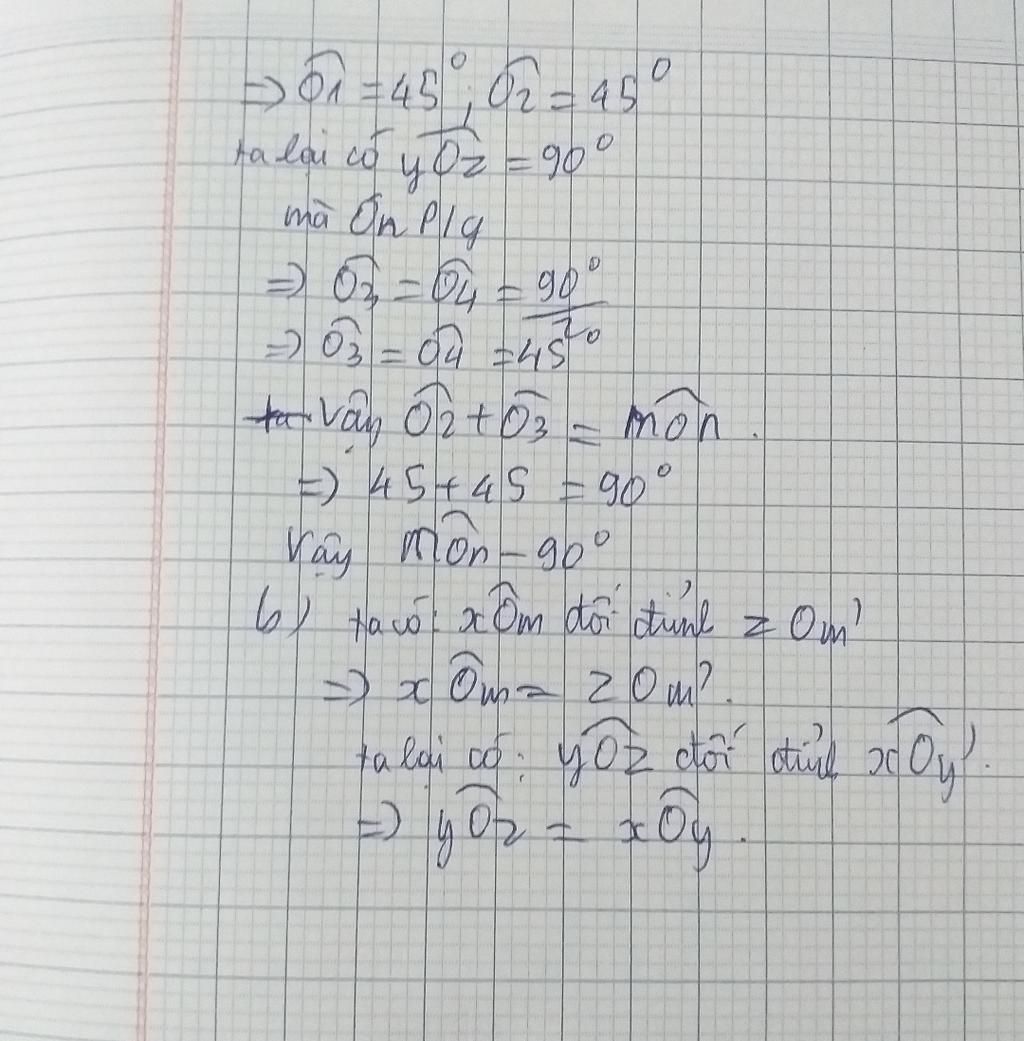 => Ô1 = 45°, Ô2 = 45°
ta lại có yÔz = 90°
mà On P/g
=> Ô3 = Ô4 = 90°/2
=> Ô3 = Ô4 = 45°
ta Vậy Ô2 + Ô3 = mÔn.
=> 45 + 45 = 90°
Vậy mÔn = 90°
b) ta có: xÔm đối đỉnh zOm'
=> xÔm = zOm'.
ta lại có: yÔz đối đỉnh xÔy'.
=> yÔz = xÔy.